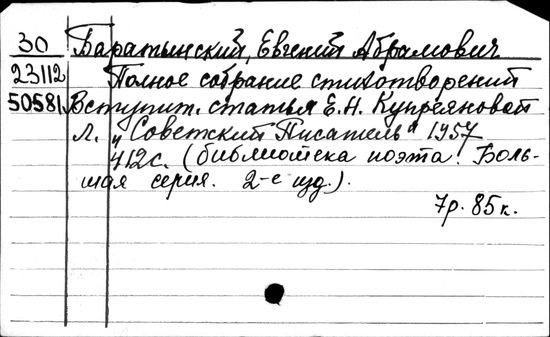 30 Баратынский, Евгений Абрамович
23112 Полное собрание стихотворений
50581 Вступит. статья Е.Н. Купреяновой
Л. „Советский Писатель“ 1957
412с. (библиотека поэта. Боль-
шая серия. 2-е изд.).
7р. 85к.